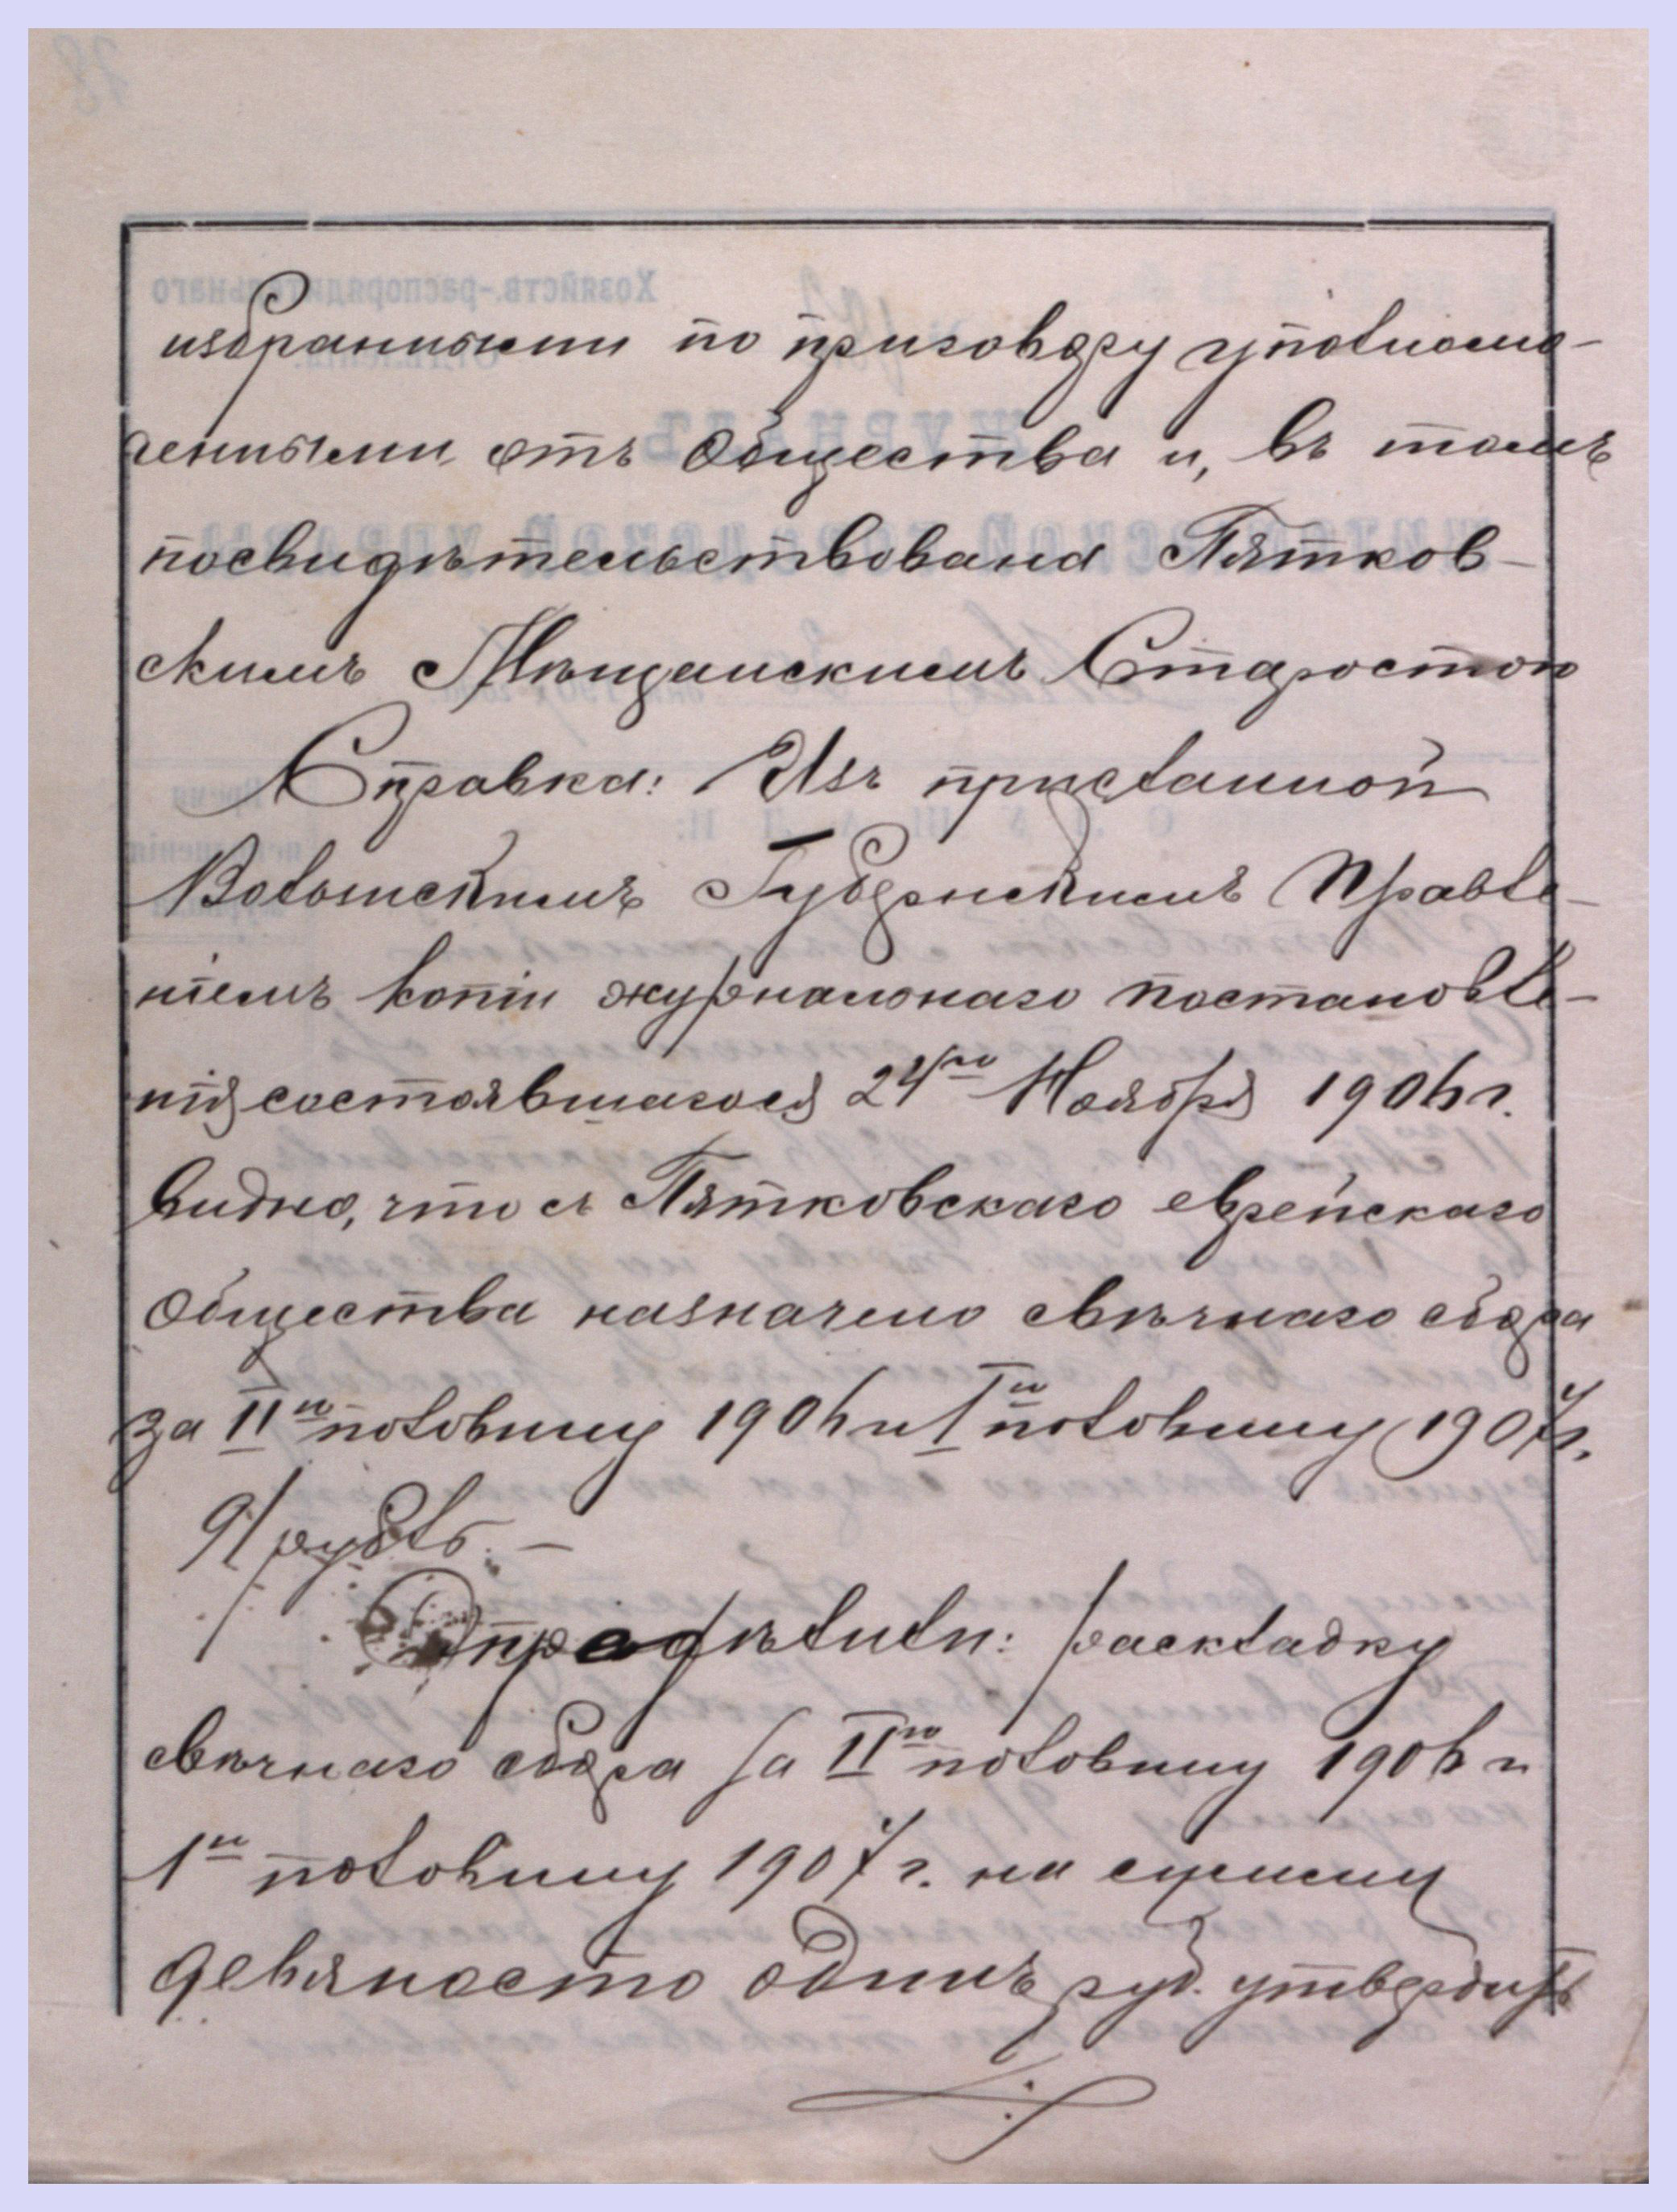 избранными по приговору уполномо-
ченными отъ общества и, въ томъ
посвидѣтельствована Пятков-
скимъ Мѣщанскимъ Старостою
Справка: Изъ присланной
Волынскимъ Губернскимъ Правле-
ніемъ копіи журнальнаго постановле-
нія состоявшагося 24го Ноября 1906 г.
видно, что съ Пятковскаго еврейскаго
общества назначено свѣчнаго сбора
за IIю половину 1906 и Iю половину 1907 г.
91 рубль. —
Опредѣлили: раскладку
свѣчнаго сбора за IIю половину 1906 и
1ю половину 1907 г. на сумму
девяносто одинъ руб. утвердить